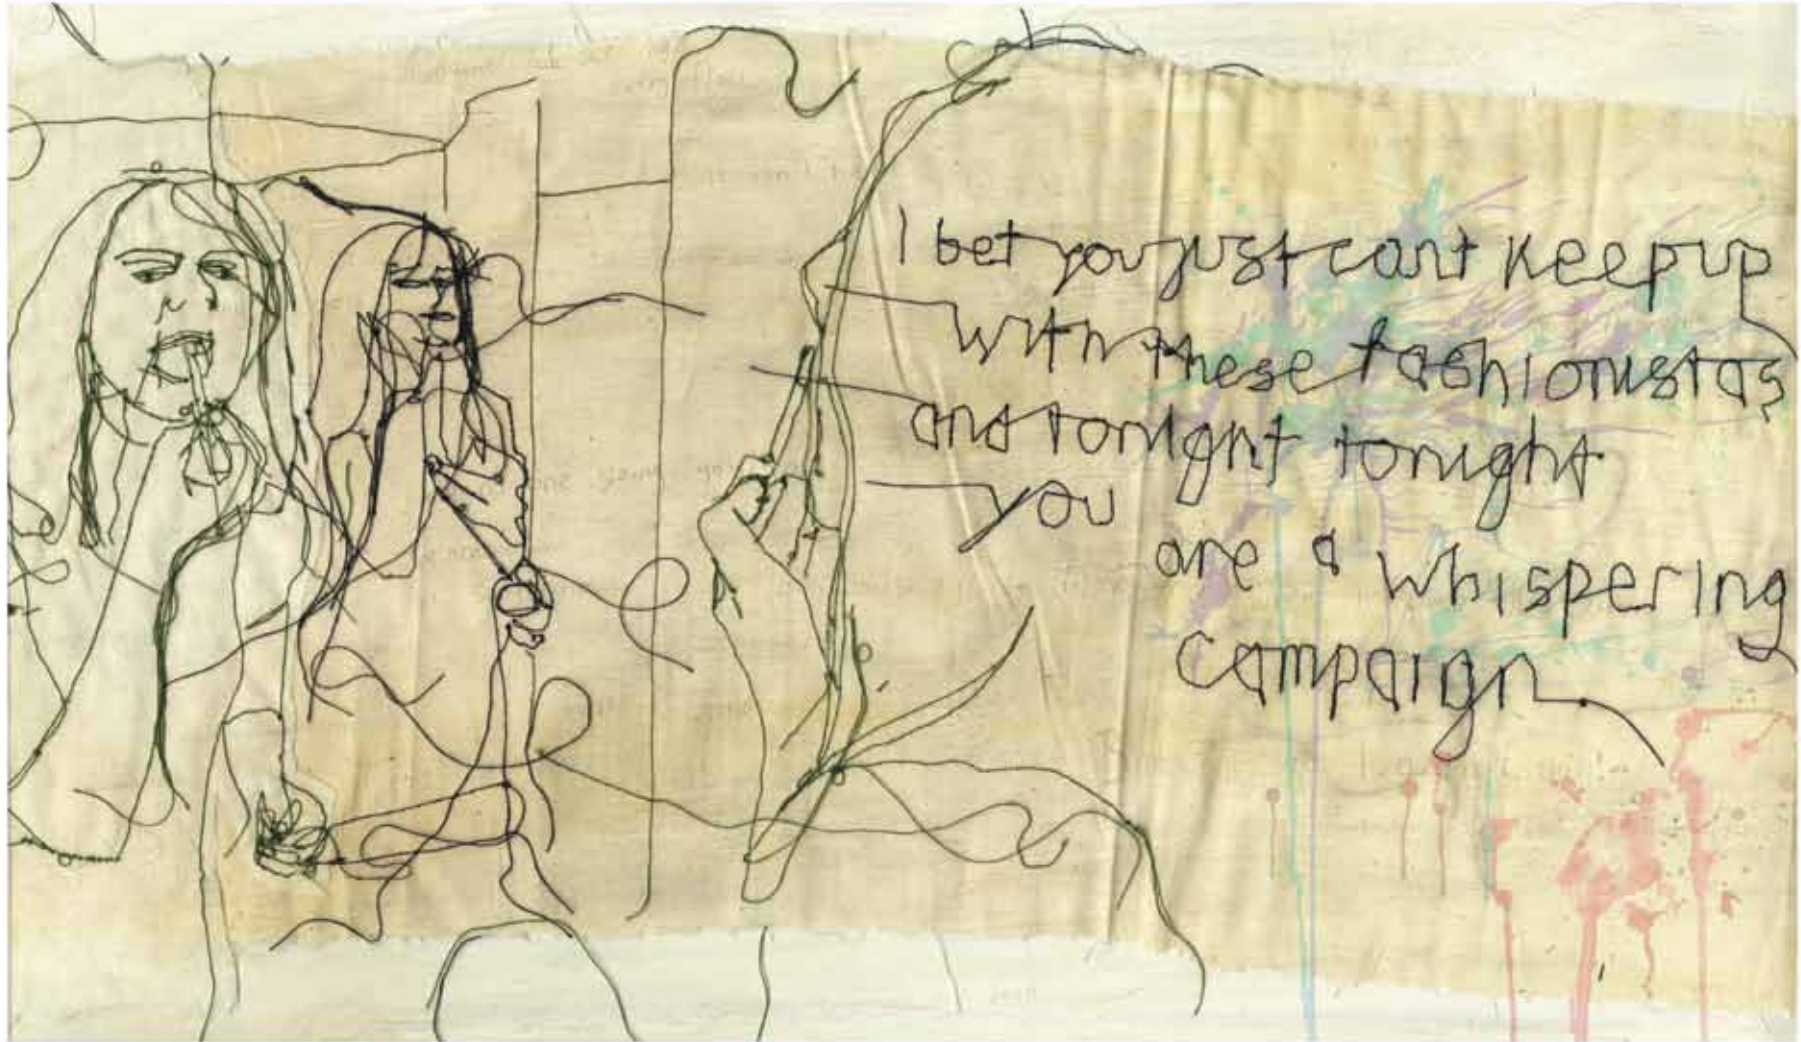 I bet you just cant keep up
with these fashionistas
and tonight tonight
you
are a whispering
campaign